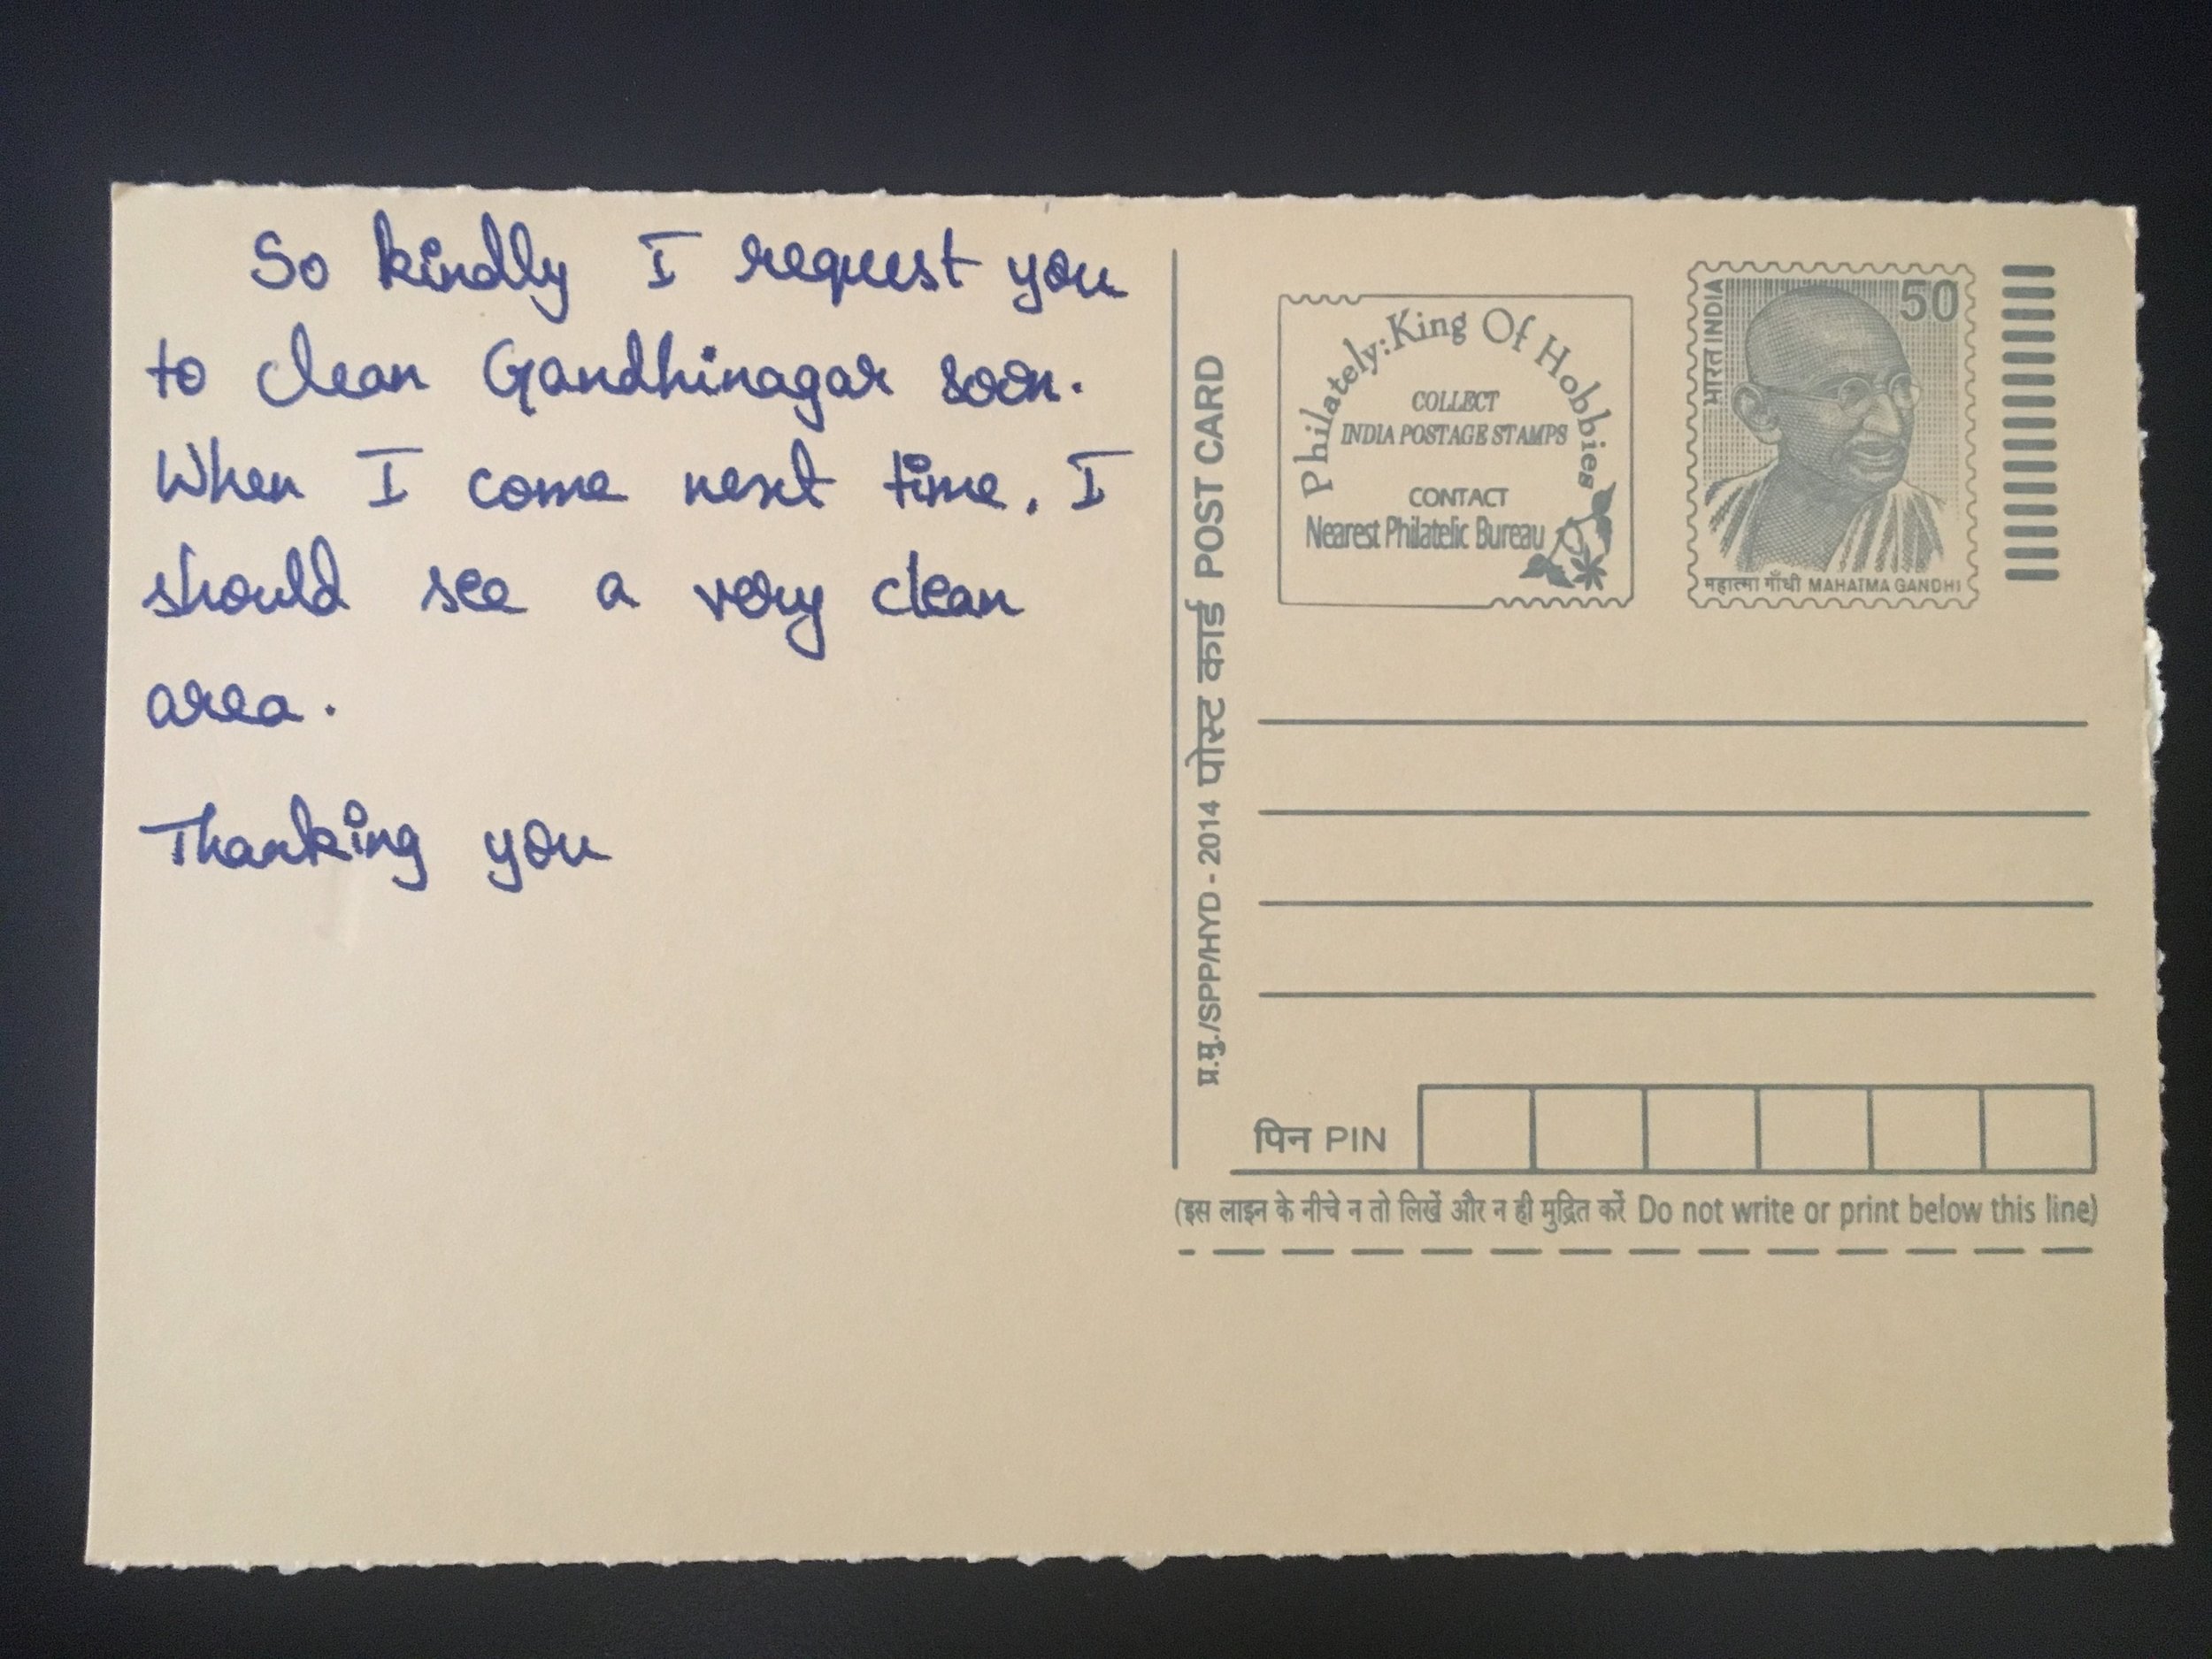 So kindly I request you
to clean Gandhinagar soon.
When I come next time. I
should see a very clean
area.
Thanking you
प्र.मु./SPP/HYD - 2014 पोस्ट कार्ड POST CARD
Philately: King Of Hobbies
COLLECT
INDIA POSTAGE STAMPS
CONTACT
Nearest Philatelic Bureau
भारत INDIA
50
महात्मा गाँधी MAHATMA GANDHI
पिन PIN
(इस लाइन के नीचे न तो लिखें और न ही मुद्रित करें Do not write or print below this line)